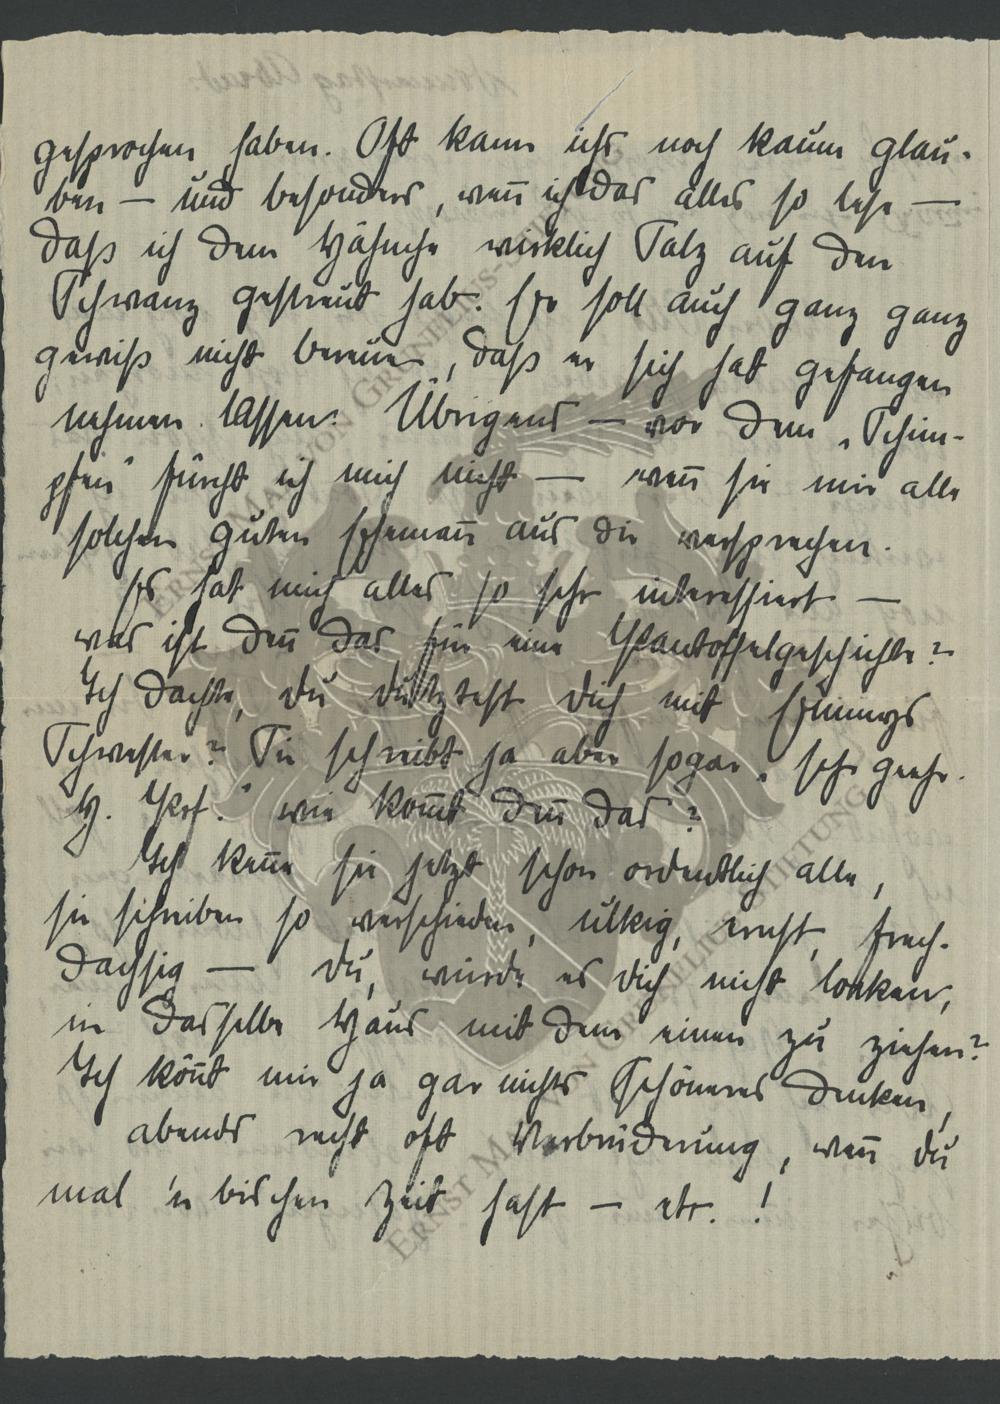 gesprochen haben. Oft kann ichs noch kaum glau-
ben — und besonders, weñ ich das alles so lese —
daß ich dem Hähnche wirklich Salz auf den
Schwanz gestreut hab. Er soll auch ganz ganz
gewiß nicht bereuen, daß er sich hat gefangen
nehmen lassen. Übrigens — vor dem „Schim-
pfen" fürcht ich mich nicht — weñ sie mir alle
solchen guten Ehemañ aus dir versprechen.
Es hat mich alles so sehr interessiert —
was ist deñ das für eine Pantoffelgeschichte?
Ich dachte, du dutztest dich mit Emmys
Schwester? Sie schreibt ja aber sogar „sehr geehr.
H. Prf." wie kom̄t deñ das?
Ich keñe sie jetzt schon ordentlich alle,
sie schreiben so verschieden, ulkig, ernst, frech-
dachsig — du, würde es dich nicht locken,
in dasselbe Haus mit dem einen zu ziehen?
Ich köñt mir ja gar nichts Schöneres denken,
abends recht oft Verbrüderung, weñ du
mal 'n bischen Zeit hast — etc. !
ERNST MARTIN VON GRAEVENITZ-STIFTUNG